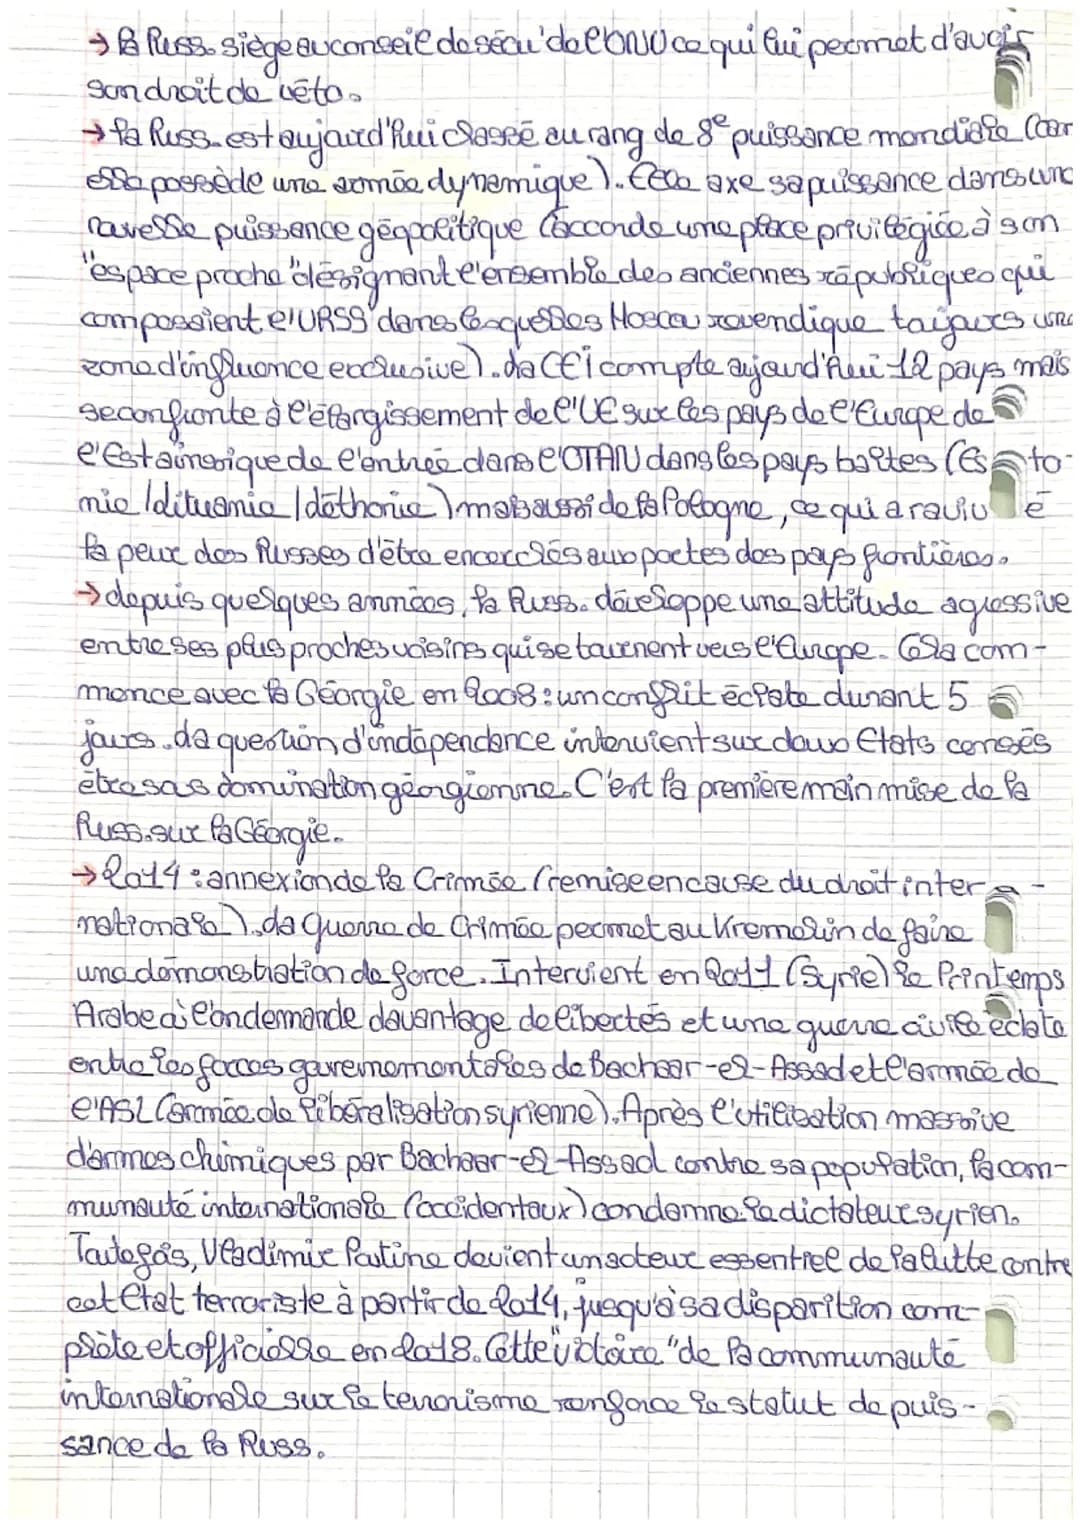 → la Russ. siège au conseil de sécu' de l'ONU ce qui lui permet d'avoir
son droit de véto.
→ la Russ. est aujourd'hui classé au rang de 8e puissance mondiale (car
elle possède une armée dynamique). Elle axe sa puissance dans une
nouvelle puissance géopolitique (accorde une place privilégiée à son
"espace proche" désignant l'ensemble des anciennes républiques qui
composaient l'URSS dans lesquelles Moscou revendique toujours une
zone d'influence exclusive). La CEI compte aujourd'hui 12 pays mais
se confronte à l'élargissement de l'UE sur les pays de l'Europe de
l'Est ainsi que de l'entrée dans l'OTAN dans les pays baltes (Esto-
nie / Lituanie / Léthonie) mais aussi de la Pologne, ce qui a ravivé
la peur des Russes d'être encerclés aux portes des pays frontières.
→ depuis quelques années, la Russ. développe une attitude agressive
entre ses plus proches voisins qui se tournent vers l'Europe. Cela com-
mence avec la Géorgie en 2008 : un conflit éclate durant 5
jours. La question d'indépendance intervient sur deux Etats censés
être sous domination géorgienne. C'est la première main mise de la
Russ. sur la Géorgie.
→ 2014 : annexion de la Crimée (remise en cause du droit inter-
nationale). La guerre de Crimée permet au Kremolin de faire
une démonstration de force. Intervient en 2011 (Syrie) le Printemps
Arabe où l'on demande davantage de libertés et une guerre civile éclate
entre les forces gouvernementales de Bachaar-el-Assad et l'armée de
l'ASL (armée de libéralisation syrienne). Après l'utilisation massive
d'armes chimiques par Bachaar-el-Assad contre sa population, la com-
munauté internationale (occidentaux) condamne le dictateur syrien.
Toutefois, Vladimir Poutine devient un acteur essentiel de la lutte contre
cet Etat terroriste à partir de 2014, jusqu'à sa disparition com-
plète et officielle en 2018. Cette "victoire" de la communauté
internationale sur le terrorisme renforce le statut de puis-
sance de la Russ.